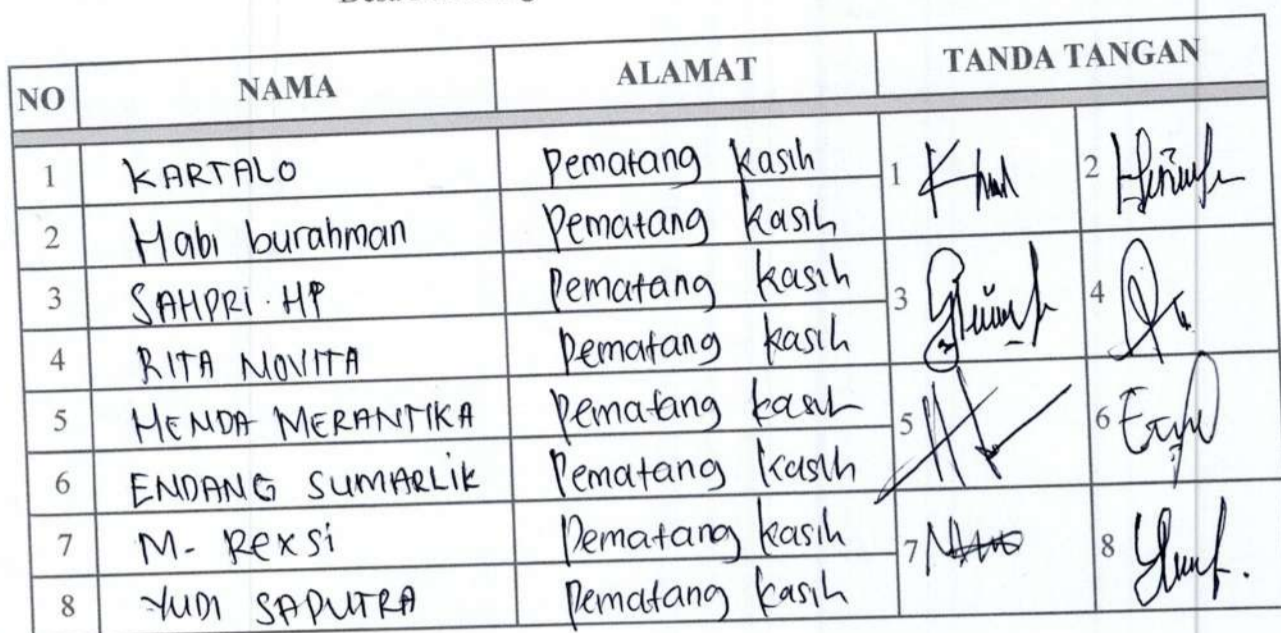 NO NAMA ALAMAT TANDA TANGAN
1 KARTALO Pematang kasih 1 2
2 Habi burahman Pematang kasih
3 SAHPRI. HP Pematang kasih 3 4
4 RITA NOVITA Pematang kasih
5 HENDA MERANTIKA Pematang kasih 5 6
6 ENDANG SUMARLIK Pematang kasih
7 M. Rexsi Pematang kasih 7 8
8 YUDI SAPUTRA Pematang kasih